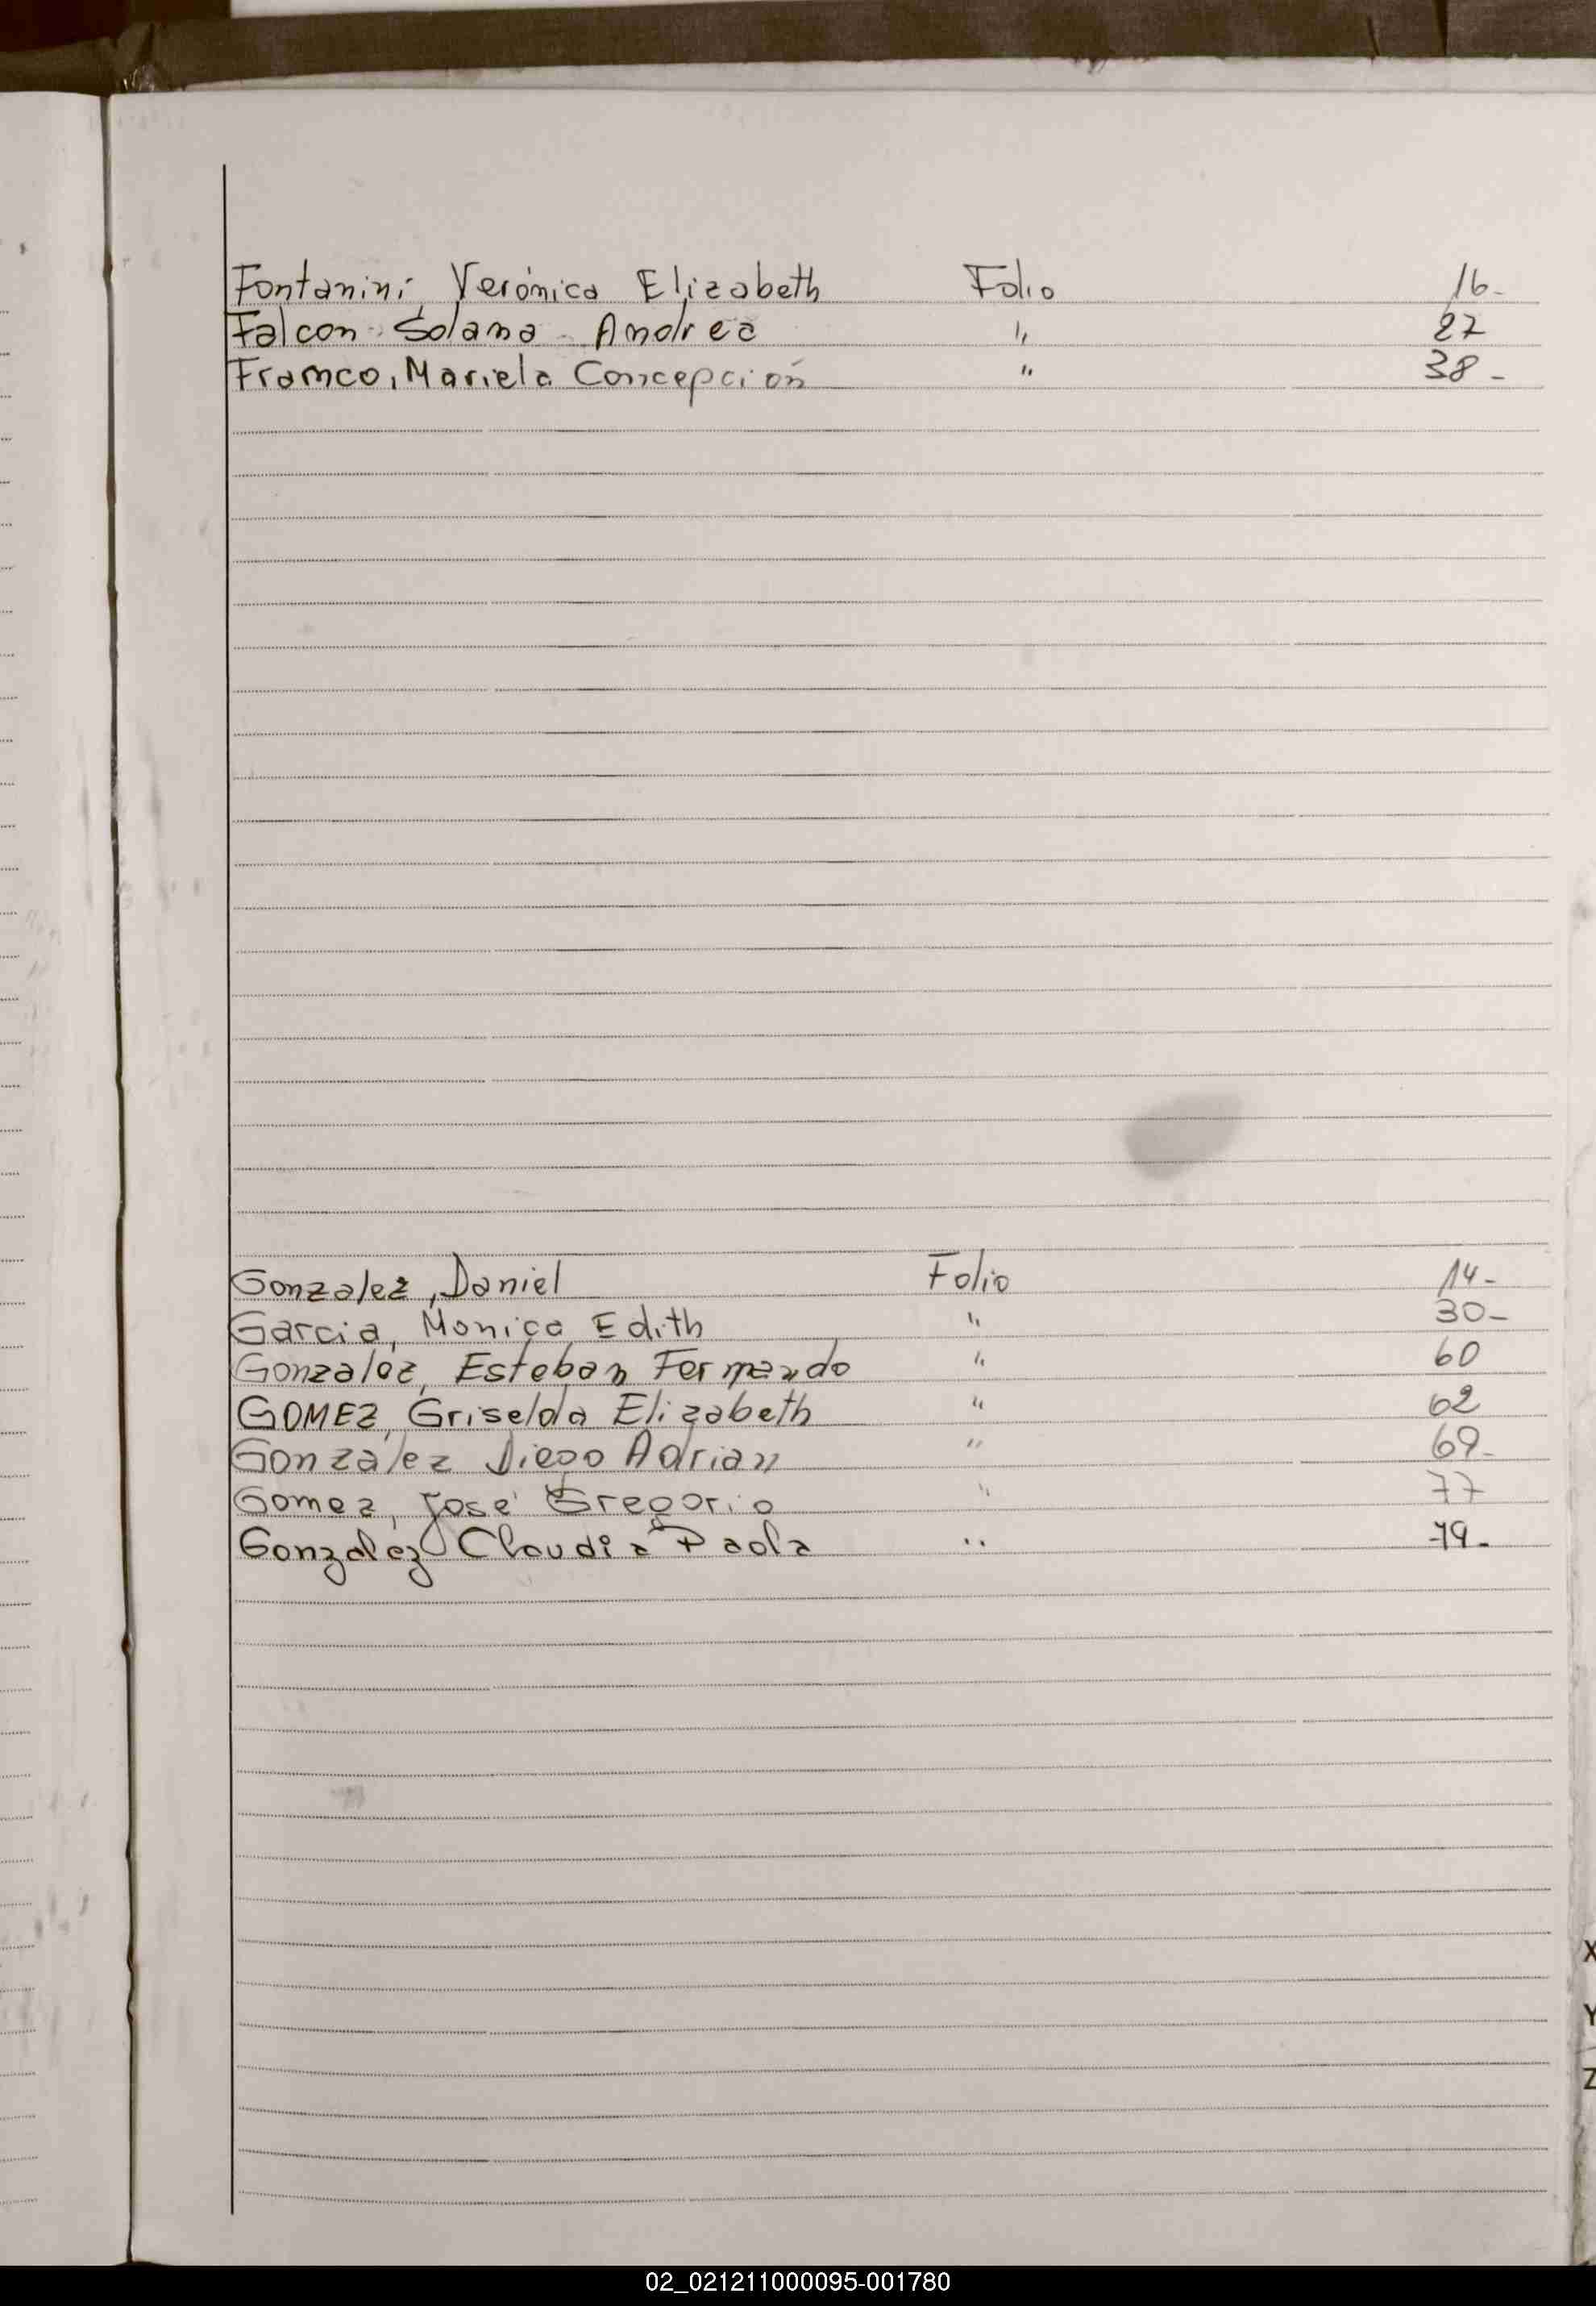 Fontanini, Verónica Elizabeth Folio 16-
Falcon Solana Andrea " 27
Franco, Mariela Concepción " 38-
Gonzalez, Daniel Folio 14-
Garcia, Monica Edith " 30-
Gonzalez, Esteban Fernando " 60
GOMEZ, Griselda Elizabeth " 62
González Diego Adrian " 69-
Gomez, José Gregorio " 77
Gonzalez Claudia Paola " 79-
X
Y
Z
02_021211000095-001780